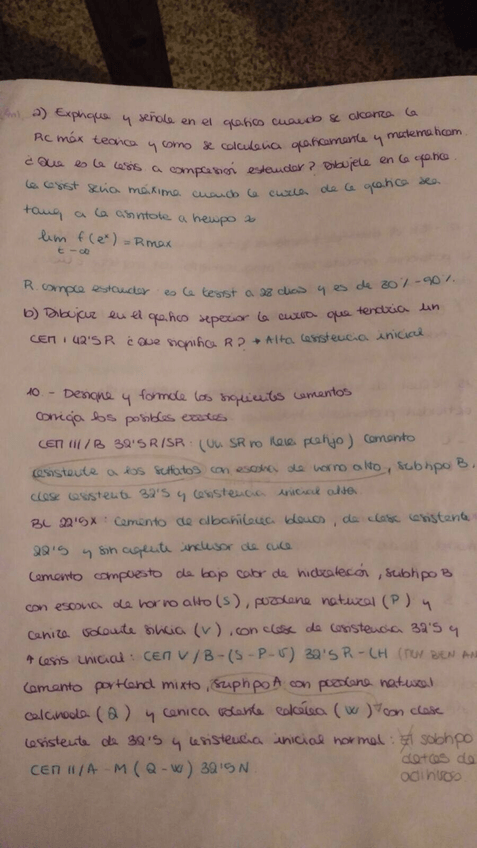 a) Explique y señale en el grafico cuando se alcanza la
Rc máx teorica y como se calcularia graficamente y matematicam.
¿Que es la resis a compresión estandar? Dibujela en la grafica.
la resist seria máxima cuando la curva de la grafica sea
tang a la asintota a tiempo
lim f(eˣ) = Rmax
t→∞
R. compre estandar es la resist a 28 dias y es de 80% - 90%.
b) Dibujar en el grafico superior la curva que tendria un
CEM I 42'5 R ¿Que significa R? * Alta resistencia inicial
10. - Designe y formule los siguientes cementos
corrija los posibles errores
CEM III/B 32'5 R/SR: (Un SR no lleva) cemento
resistente a los sulfatos con escoria de horno alto, subtipo B,
clase resistente 32'5 y resistencia inicial alta.
BL 22'5X: Cemento de albañileria blanco, de clase resistente
22'5 y sin agente inclusor de aire
Cemento compuesto de bajo calor de hidratación, subtipo B
con escoria de horno alto (S), puzolana natural (P) y
ceniza volante silicia (V), con clase de resistencia 32'5 y
↑ resis inicial: CEM V/B-(S-P-V) 32'5 R-LH
Cemento portland mixto, suptipo A con puzolana natural
calcinada (Q) y ceniza volante calcárea (W) con clase
resistente de 32'5 y resistencia inicial normal: El subtipo
CEM II/A-M (Q-W) 32'5N
detras de
aditivos